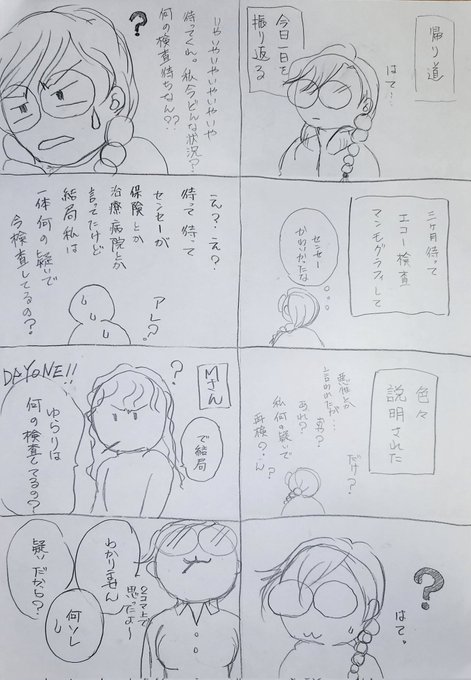 帰り道
今日一日を
振り返る
はて…
三ヶ月待って
エコー検査
マンモグラフィして
センセー
かわいかったな
色々
説明された
悪性とか
言われたが…
だけ?
あれ?
私何の疑いで
再検?
ん?
?
はて。
いやいやいやいやいや
待ってくれ。私今どんな状況?
何の検査待ちなん??
?
え?え?
待って待って
センセーが
保険とか
治療病院とか
言ってたけど
結局私は
一体何の疑いで
今検査してるの?
アレ?
Mさん
で結局
?
ゆらりは
何の検査してるの?
DAYONE!!
2コマ上で
思ったよ~
わかりません
何ソレ
疑いだから?